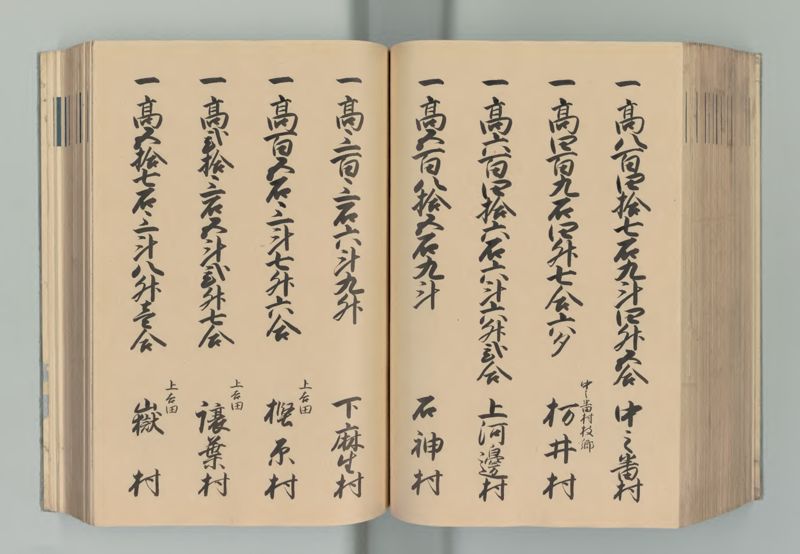 一高八百四拾七石九斗四升五合 中之番村
一高四百九石四升七合六夕 中之番村枝郷 杤井村
一高六百四拾六石六斗六升弐合 上河邊村
一高五百八拾五石九斗 石神村
一高三百三石六斗九升 下麻生村
一高百五石三斗七升六合 上吉田 樫原村
一高弐拾三石五斗弐升七合 上吉田 譲葉村
一高五拾七石三斗八升壱合 上吉田 嶽村